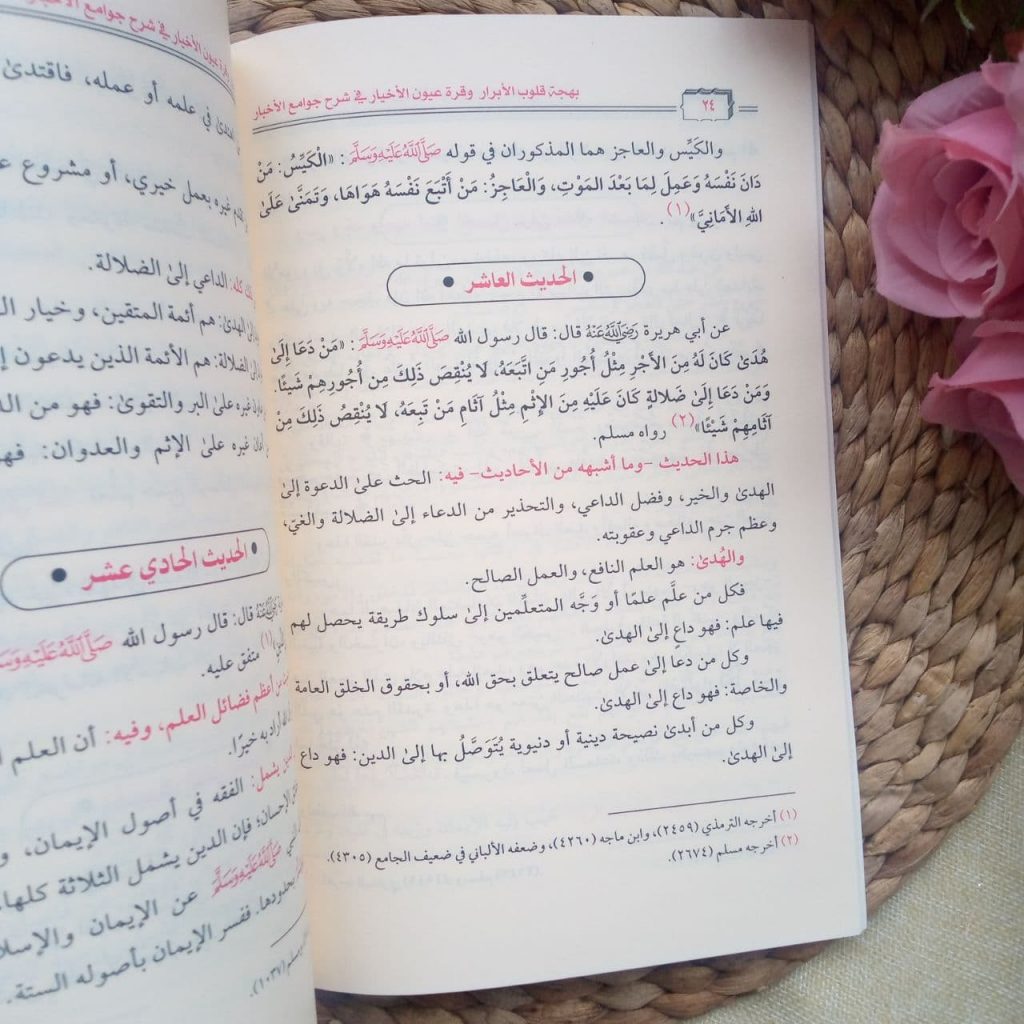 بهجة قلوب الأبرار وقرة عيون الأخيار في شرح جوامع الأخبار
٢٤
والكَيِّس والعاجز هما المذكوران في قوله صَلَّى اللَّهُ عَلَيْهِ وَسَلَّمَ: «الْكَيِّسُ: مَنْ
دَانَ نَفْسَهُ وَعَمِلَ لِمَا بَعْدَ المَوْتِ، وَالْعَاجِزُ: مَنْ أَتْبَعَ نَفْسَهُ هَوَاهَا، وَتَمَنَّىٰ عَلَىٰ
اللهِ الأَمَانِيَّ»(١).
الحديث العاشر
عن أبي هريرة رَضِيَ اللَّهُ عَنْهُ قال: قال رسول الله صَلَّى اللَّهُ عَلَيْهِ وَسَلَّمَ: «مَنْ دَعَا إِلَىٰ
هُدَىٰ كَانَ لَهُ مِنَ الأَجْرِ مِثْلُ أُجُورِ مَن اتَّبَعَهُ، لَا يُنْقِصَ ذَلِكَ مِن أُجُورِهِمْ شَيْئًا.
وَمَنْ دَعَا إِلَىٰ ضَلالةٍ كَانَ عَلَيْهِ مِنَ الإِثْمِ مِثْلُ آثَامِ مَنْ تَبِعَهُ، لَا يُنْقِصُ ذَلِكَ مِنْ
آثَامِهِمْ شَيْئًا»(٢) رواه مسلم.
هذا الحديث -وما أشبهه من الأحاديث- فيه: الحث علىٰ الدعوة إلىٰ
الهدىٰ والخير، وفضل الداعي، والتحذير من الدعاء إلىٰ الضلالة والغيّ،
وعظم جرم الداعي وعقوبته.
والهُدىٰ: هو العلم النافع، والعمل الصالح.
فكل من علَّم علمًا أو وَجَّه المتعلِّمين إلىٰ سلوك طريقة يحصل لهم
فيها علم: فهو داعٍ إلىٰ الهدىٰ.
وكل من دعا إلىٰ عمل صالح يتعلق بحق الله، أو بحقوق الخلق العامة
والخاصة: فهو داع إلىٰ الهدىٰ.
وكل من أبدىٰ نصيحة دينية أو دنيوية يُتَوَصَّلُ بها إلىٰ الدين: فهو داع
إلىٰ الهدىٰ.
(١) أخرجه الترمذي (٢٤٥٩)، وابن ماجه (٤٢٦٠)، وضعفه الألباني في ضعيف الجامع (٤٣٠٥).
(٢) أخرجه مسلم (٢٦٧٤).
عيون الأخيار في شرح جوامع
في علمه أو عمله، فاقتدىٰ
غيره بعمل خيري، أو مشروع
كله: الداعي إلىٰ الضلالة.
الهدىٰ: هم أئمة المتقين، وخيار
الضلالة: هم الأئمة الذين يدعون
غيره علىٰ البر والتقوىٰ: فهو من
غيره علىٰ الإثم والعدوان:
الحديث الحادي عشر
قال: قال رسول الله
(١) متفق عليه.
أعظم فضائل العلم، وفيه: أن العلم
أراد به خيرًا.
يشمل: الفقه في أصول الإيمان،
الإحسان؛ فإن الدين يشمل الثلاثة كلها
صَلَّى اللَّهُ عَلَيْهِ وَسَلَّمَ عن الإيمان
بحدودها. ففسر الإيمان بأصوله الستة.
(١٠٣٧).